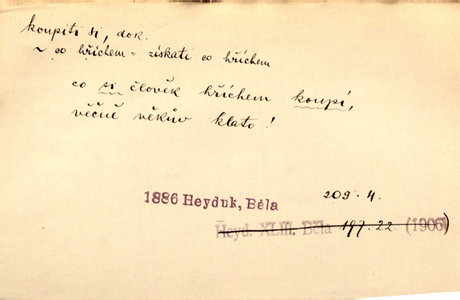 koupiti si, dok.
~ co hříchem = získati co hříchem
co si člověk hříchem koupí,
věčně věkův klato!
1886 Heyduk, Běla 209. 4.
Heyd. XLIII. Běla 197. 22. (1906)